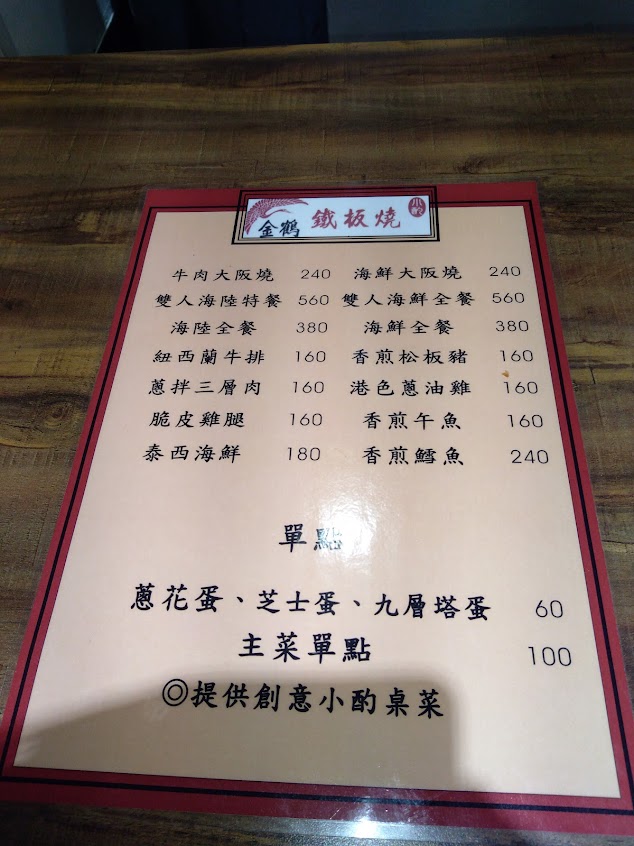 金鶴 鐵板燒 小酌
牛肉大阪燒 240 海鮮大阪燒 240
雙人海陸特餐 560 雙人海鮮全餐 560
海陸全餐 380 海鮮全餐 380
紐西蘭牛排 160 香煎松板豬 160
蔥拌三層肉 160 港色蔥油雞 160
脆皮雞腿 160 香煎午魚 160
泰西海鮮 180 香煎鱈魚 240
單點
蔥花蛋、芝士蛋、九層塔蛋 60
主菜單點 100
◎提供創意小酌桌菜